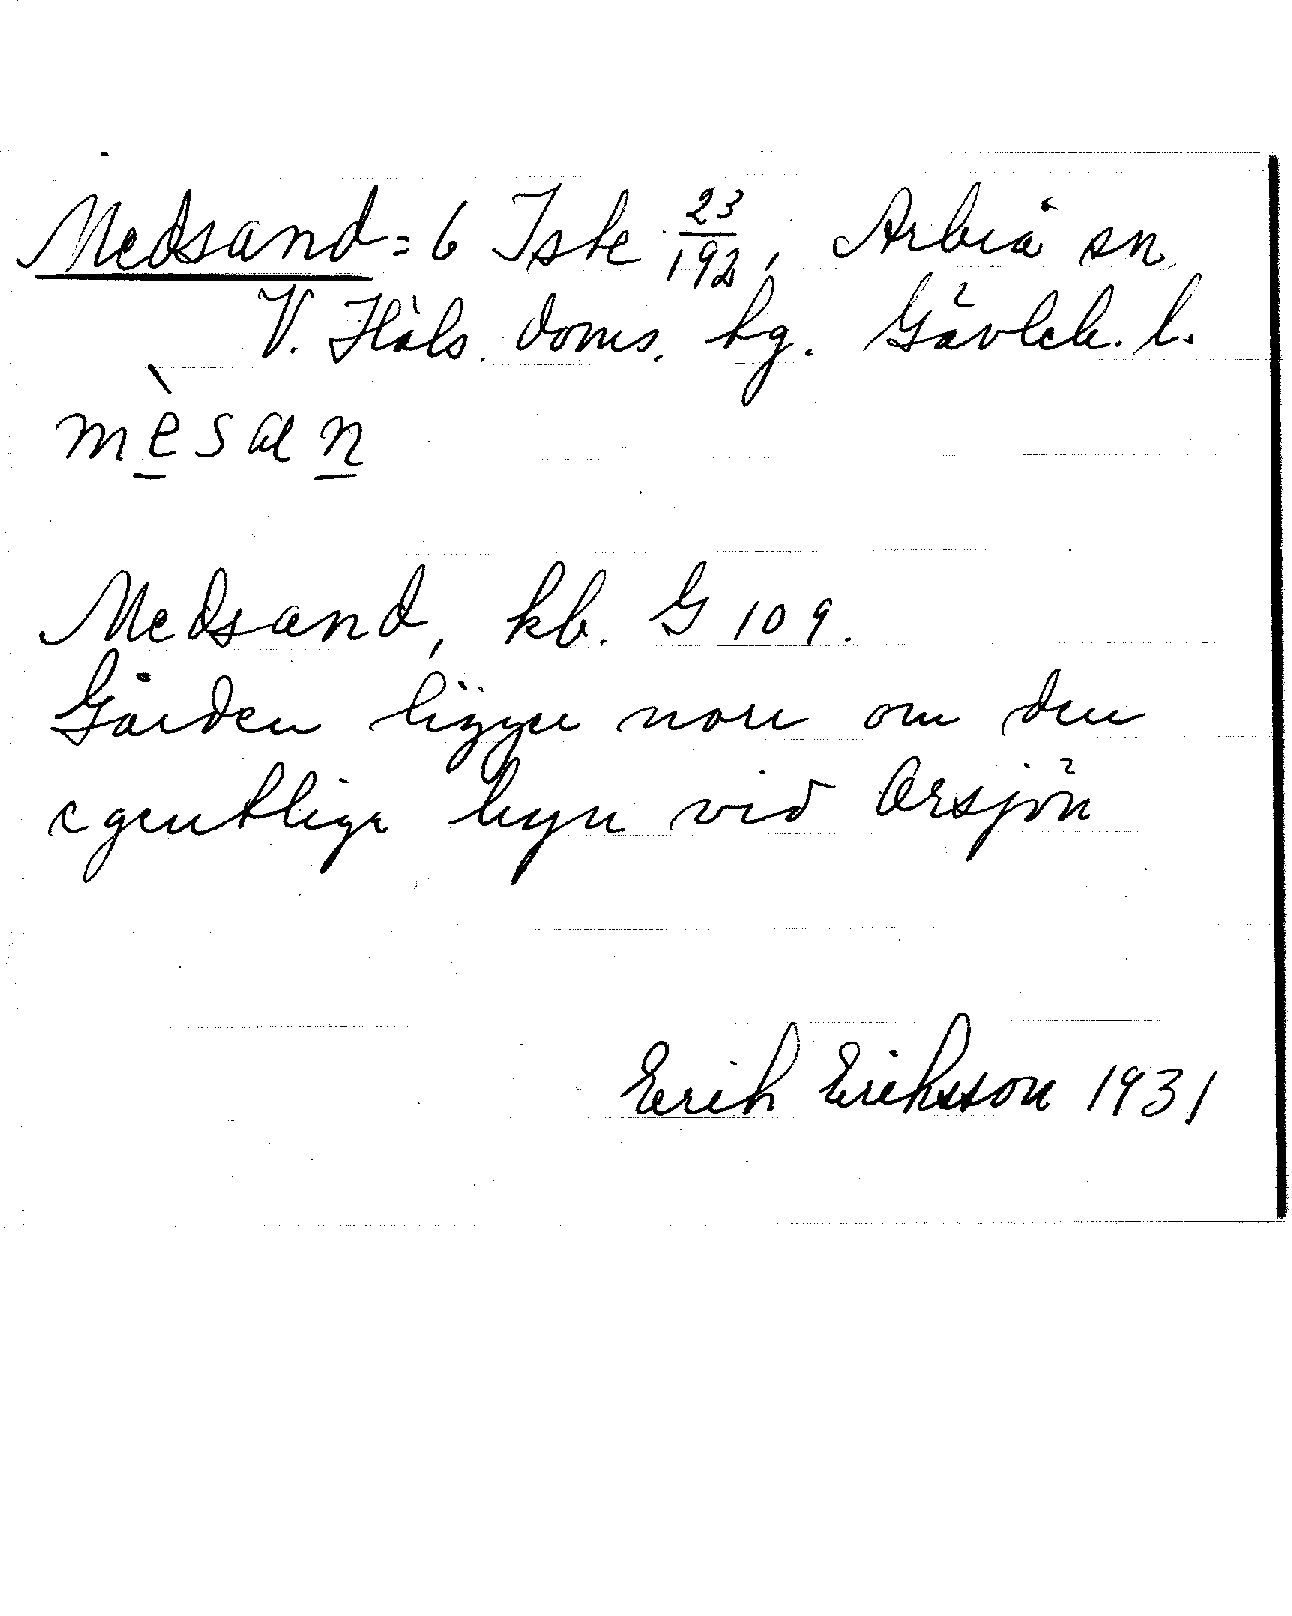 Medsand = 6 Iste 23/192, Arbrå sn
V. Häls. doms. hg. Gävleb. l.
mèsan
Medsand, kb. G 109.
Gården ligger norr om den
egentliga byn vid Orsjön
Erik Eriksson 1931